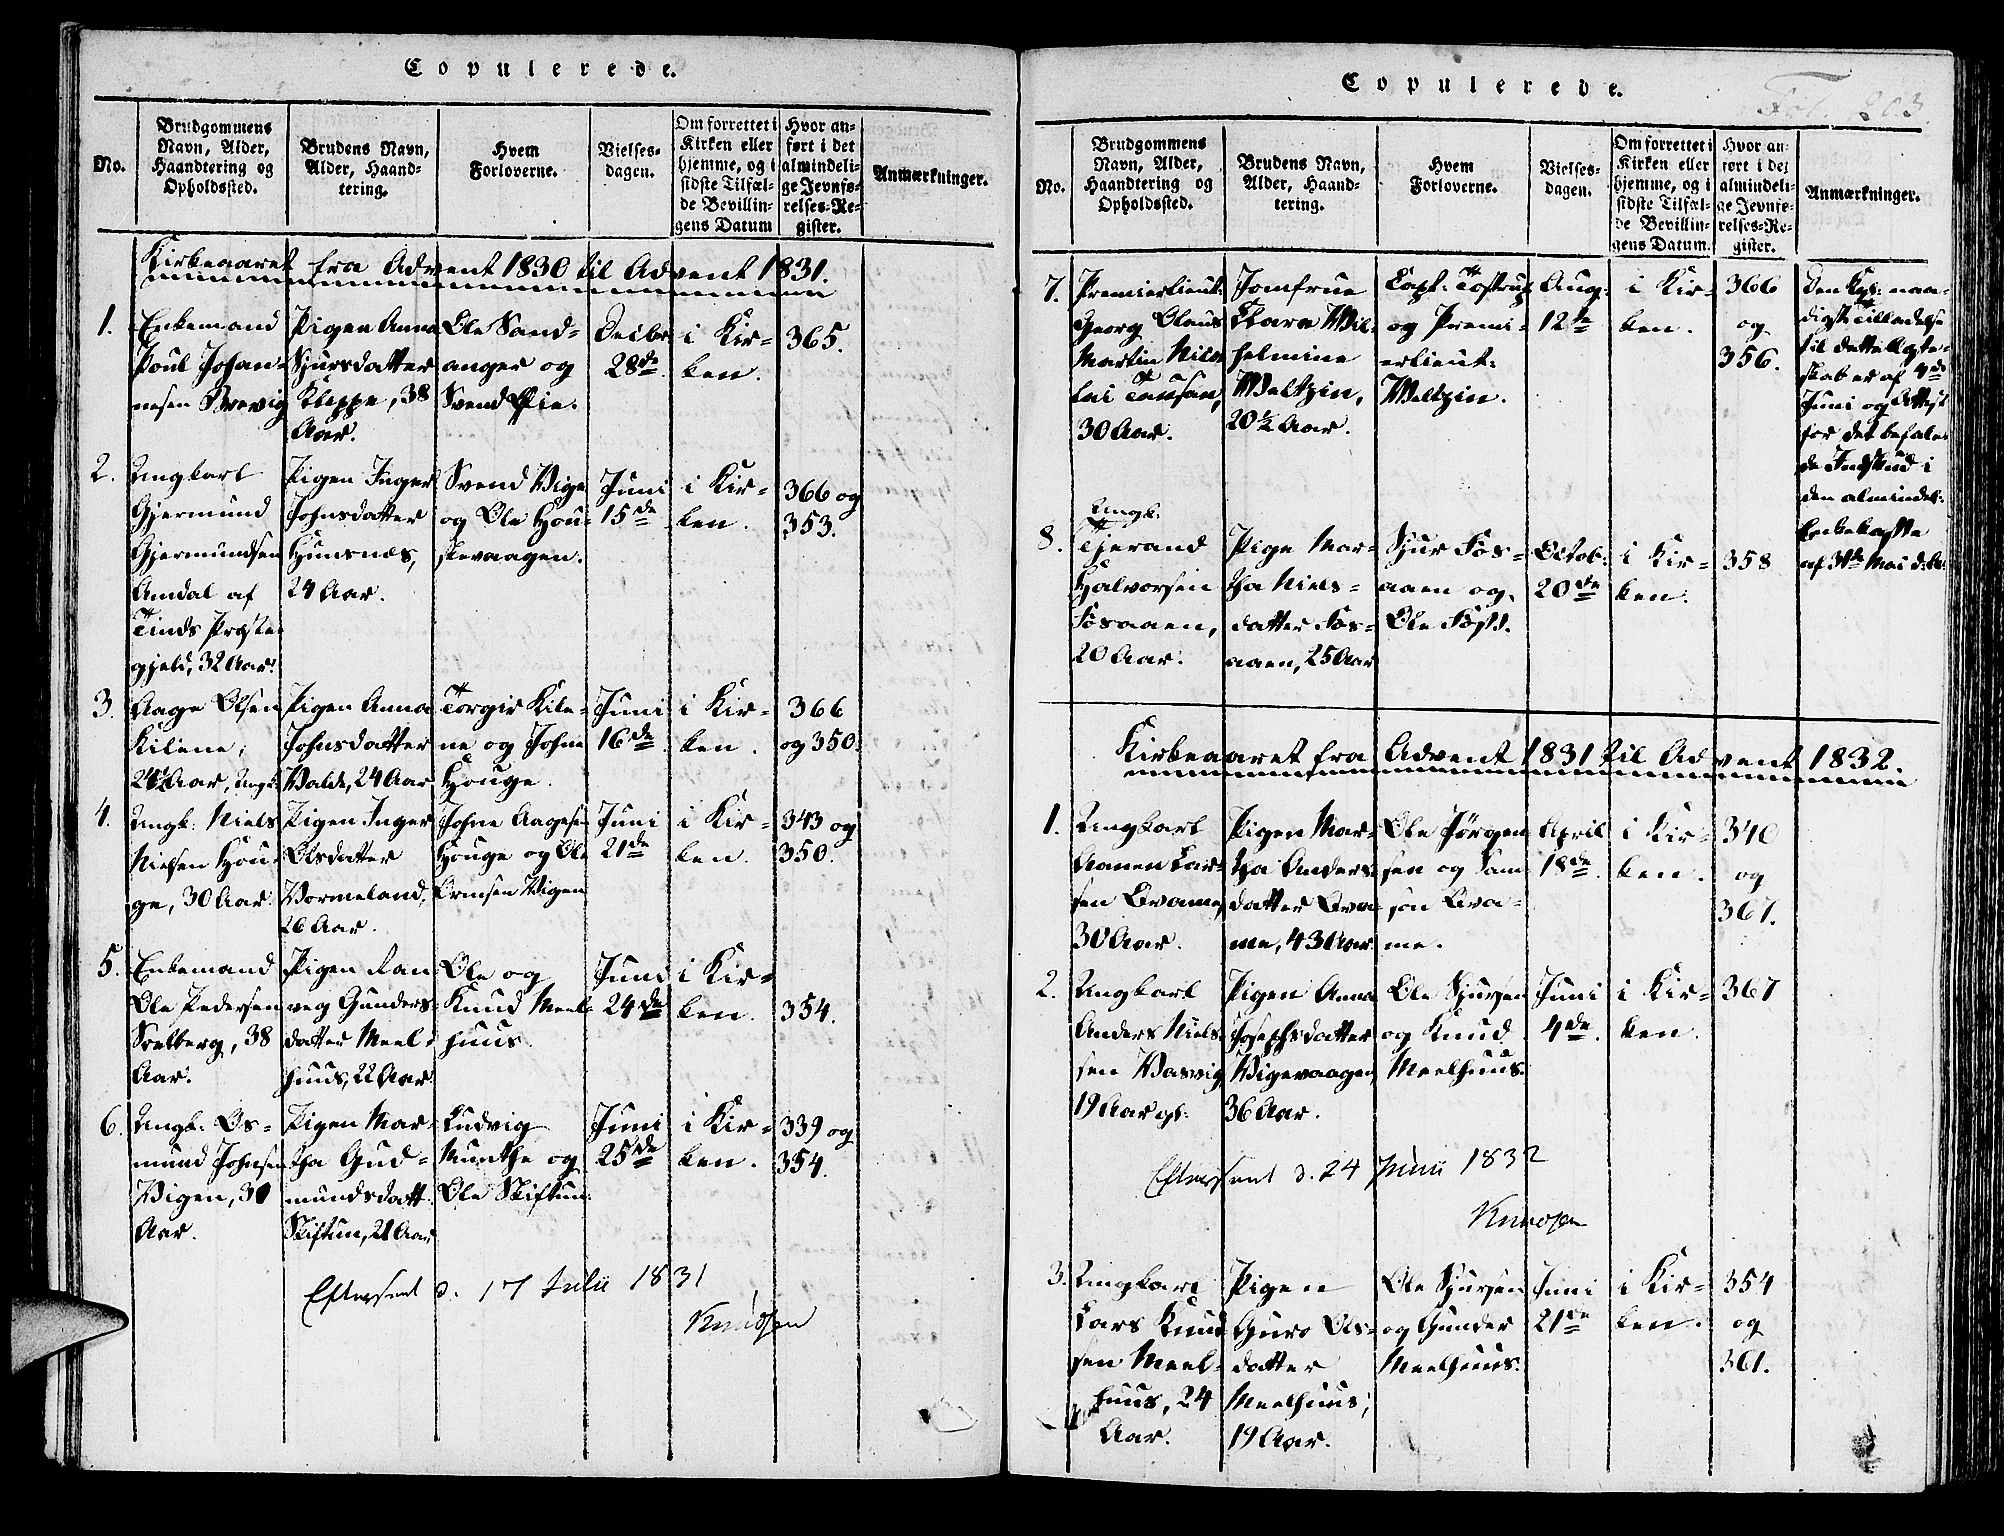 Copulerede.
No.
Brudgommens Navn, Alder, Haandtering og Opholdssted.
Brudens Navn, Alder, Haandtering.
Hvem Forloverne.
Vielses-dagen.
Om forrettet i Kirken eller hjemme, og i sidste Tilfælde Bevillingens Datum
Hvor anført i det almindelige Jevnførelses-Register.
Anmærkninger.
Kirkeaaret fra Advent 1830 til Advent 1831.
1.
Enkemand
Poul Johan-
nesen
Pigen Anna
Sjursdatter
Kleppe, 38
Aar.
Ole Sand-
anger og
Svend
Decbr
28de
i Kir-
ken.
365.
2.
Ungkarl
Gjermund
Gjermundsen
Amdal af
Tinds Præste-
gjeld, 32 Aar.
Pigen Inger
Johnsdatter
Hunsnæs,
24 Aar.
Svend Vige
og Ole Hou-
skevaagen.
Juni
15de
i Kir-
ken.
366 og
353.
3.
Aage Olsen
Kilene,
24½ Aar, Ungk:
Pigen Anna
Johnsdatter
Valde, 24 Aar
Torgir Kile-
ne og Johne
Houge.
Juni
16de
i Kir-
ken.
366
og 350.
4.
Ungk: Niels
Nielsen Hou-
ge, 30 Aar.
Pigen Inger
Olsdatter
Vormeland,
26 Aar.
Johne Aagesen
Houge og Ole
Ormsen Vigen
Juni
21de
i Kir-
ken.
343 og
350.
5.
Enkemand
Ole Pedersen
Soelberg, 38
Aar.
Pigen Ran
veg Gunders-
datter Meel-
huus, 22 Aar.
Ole og
Knud Meel-
huus.
Juni
24de
i Kir-
ken.
354.
6.
Ungk: Os-
mund Johnsen
Vigen, 30
Aar.
Pigen Mar-
tha Gud-
mundsdatt:
Skiftun, 21 Aar
Ludvig
Munthe og
Ole Skiftun.
Juni
25de
i Kir-
ken.
339 og
354.
Efterseet d. 17 Julii 1831
Knudsen
Copulerede.
Fol. 203.
No.
Brudgommens Navn, Alder, Haandtering og Opholdssted.
Brudens Navn, Alder, Haandtering.
Hvem Forloverne.
Vielses-dagen.
Om forrettet i Kirken eller hjemme, og i sidste Tilfælde Bevillingens Datum.
Hvor anført i det almindelige Jevnførelses-Register.
Anmærkninger.
7.
Premierlieut:
Georg Olaus
Martin Nico
lai Tausan,
30 Aar.
Jomfrue
Wil-
helmine
Weltzin,
20½ Aar.
Capt: Tostrup
og Premi-
erlieut:
Weltzin.
Aug:
12te
i Kir-
ken.
366
og
356.
Den Kgl: naa-
digste Tilladelse
til dette Ægte-
skab er af 4de
Juni og Attest
for det befale-
de Indskud i
den almindel:
Enkekasse
af 31te Mai
8.
Ungk:
Tjerand
Halvorsen
Fosaaen,
20 Aar.
Pige Mar-
tha Niels-
datter Fos-
aaen, 25 Aar
Sjur Fos-
aaen og
Ole
Octob:
20de
i Kir-
ken.
358
Kirkeaaret fra Advent 1831 til Advent 1832.
1.
Ungkarl
Aanen Lar-
sen Brame,
30 Aar.
Pigen Mar-
tha Anders-
datter Bra-
me, 43 Aar
Ole Jørgen
sen og Sam
son Bra-
me.
April
18de
i Kir-
ken.
340
og
367.
2.
Ungkarl
Anders Niels-
sen Vasvig
19 Aar gl:
Pigen Anna
Josephsdatter
Vigevaagen,
36 Aar.
Ole Sjursen
og Knud
Meelhuus.
Juni
4de
i Kir-
ken.
367
Efterseet d. 24 Junii 1832
Knudsen
3.
Ungkarl
Lars Knud
sen Meel-
huus, 24
Aar.
Pigen
Guro Ols-
datter
Meelhuus,
19 Aar.
Ole Sjursen
og Gunder
Meelhuus.
Juni
21de
i Kir-
ken.
354
og
361.